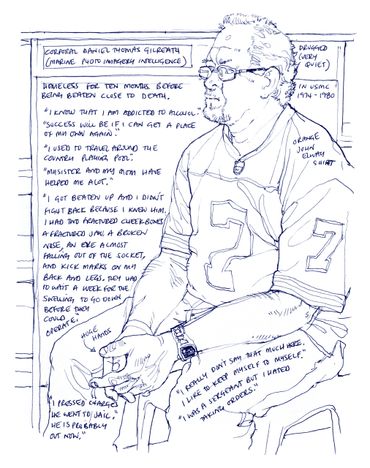 CORPORAL DANIEL THOMAS GILREATH
(MARINE PHOTO IMAGERY INTELLIGENCE)
HOMELESS FOR TEN MONTHS BEFORE
BEING BEATEN CLOSE TO DEATH.
"I KNOW THAT I AM ADDICTED TO ALCOHOL."
"SUCCESS WILL BE IF I CAN GET A PLACE
OF MY OWN AGAIN."
"I USED TO TRAVEL AROUND THE
COUNTRY PLAYING POOL."
"MY SISTER AND MY MOM HAVE
HELPED ME ALOT."
"I GOT BEATEN UP AND I DIDN'T
FIGHT BACK BECAUSE I KNEW HIM.
I HAD TWO FRACTURED CHEEKBONES,
A FRACTURED JAW, A BROKEN
NOSE, AN EYE ALMOST
FALLING OUT OF THE SOCKET,
AND KICK MARKS ON MY
BACK AND LEGS. THEY HAD
TO WAIT A WEEK FOR THE
SWELLING TO GO DOWN
BEFORE THEY
COULD
OPERATE."
HUGE
HANDS
"I PRESSED CHARGES.
HE WENT TO JAIL.
HE IS PROBABLY
OUT NOW."
DRUGGED
(VERY
QUIET)
IN USMC
1974-1980
ORANGE
JOHN
ELWAY
SHIRT
7
7
"I REALLY DON'T SAY THAT MUCH HERE.
I LIKE TO KEEP MYSELF TO MYSELF."
"I WAS A SERGEANT BUT I HATED
TAKING ORDERS."